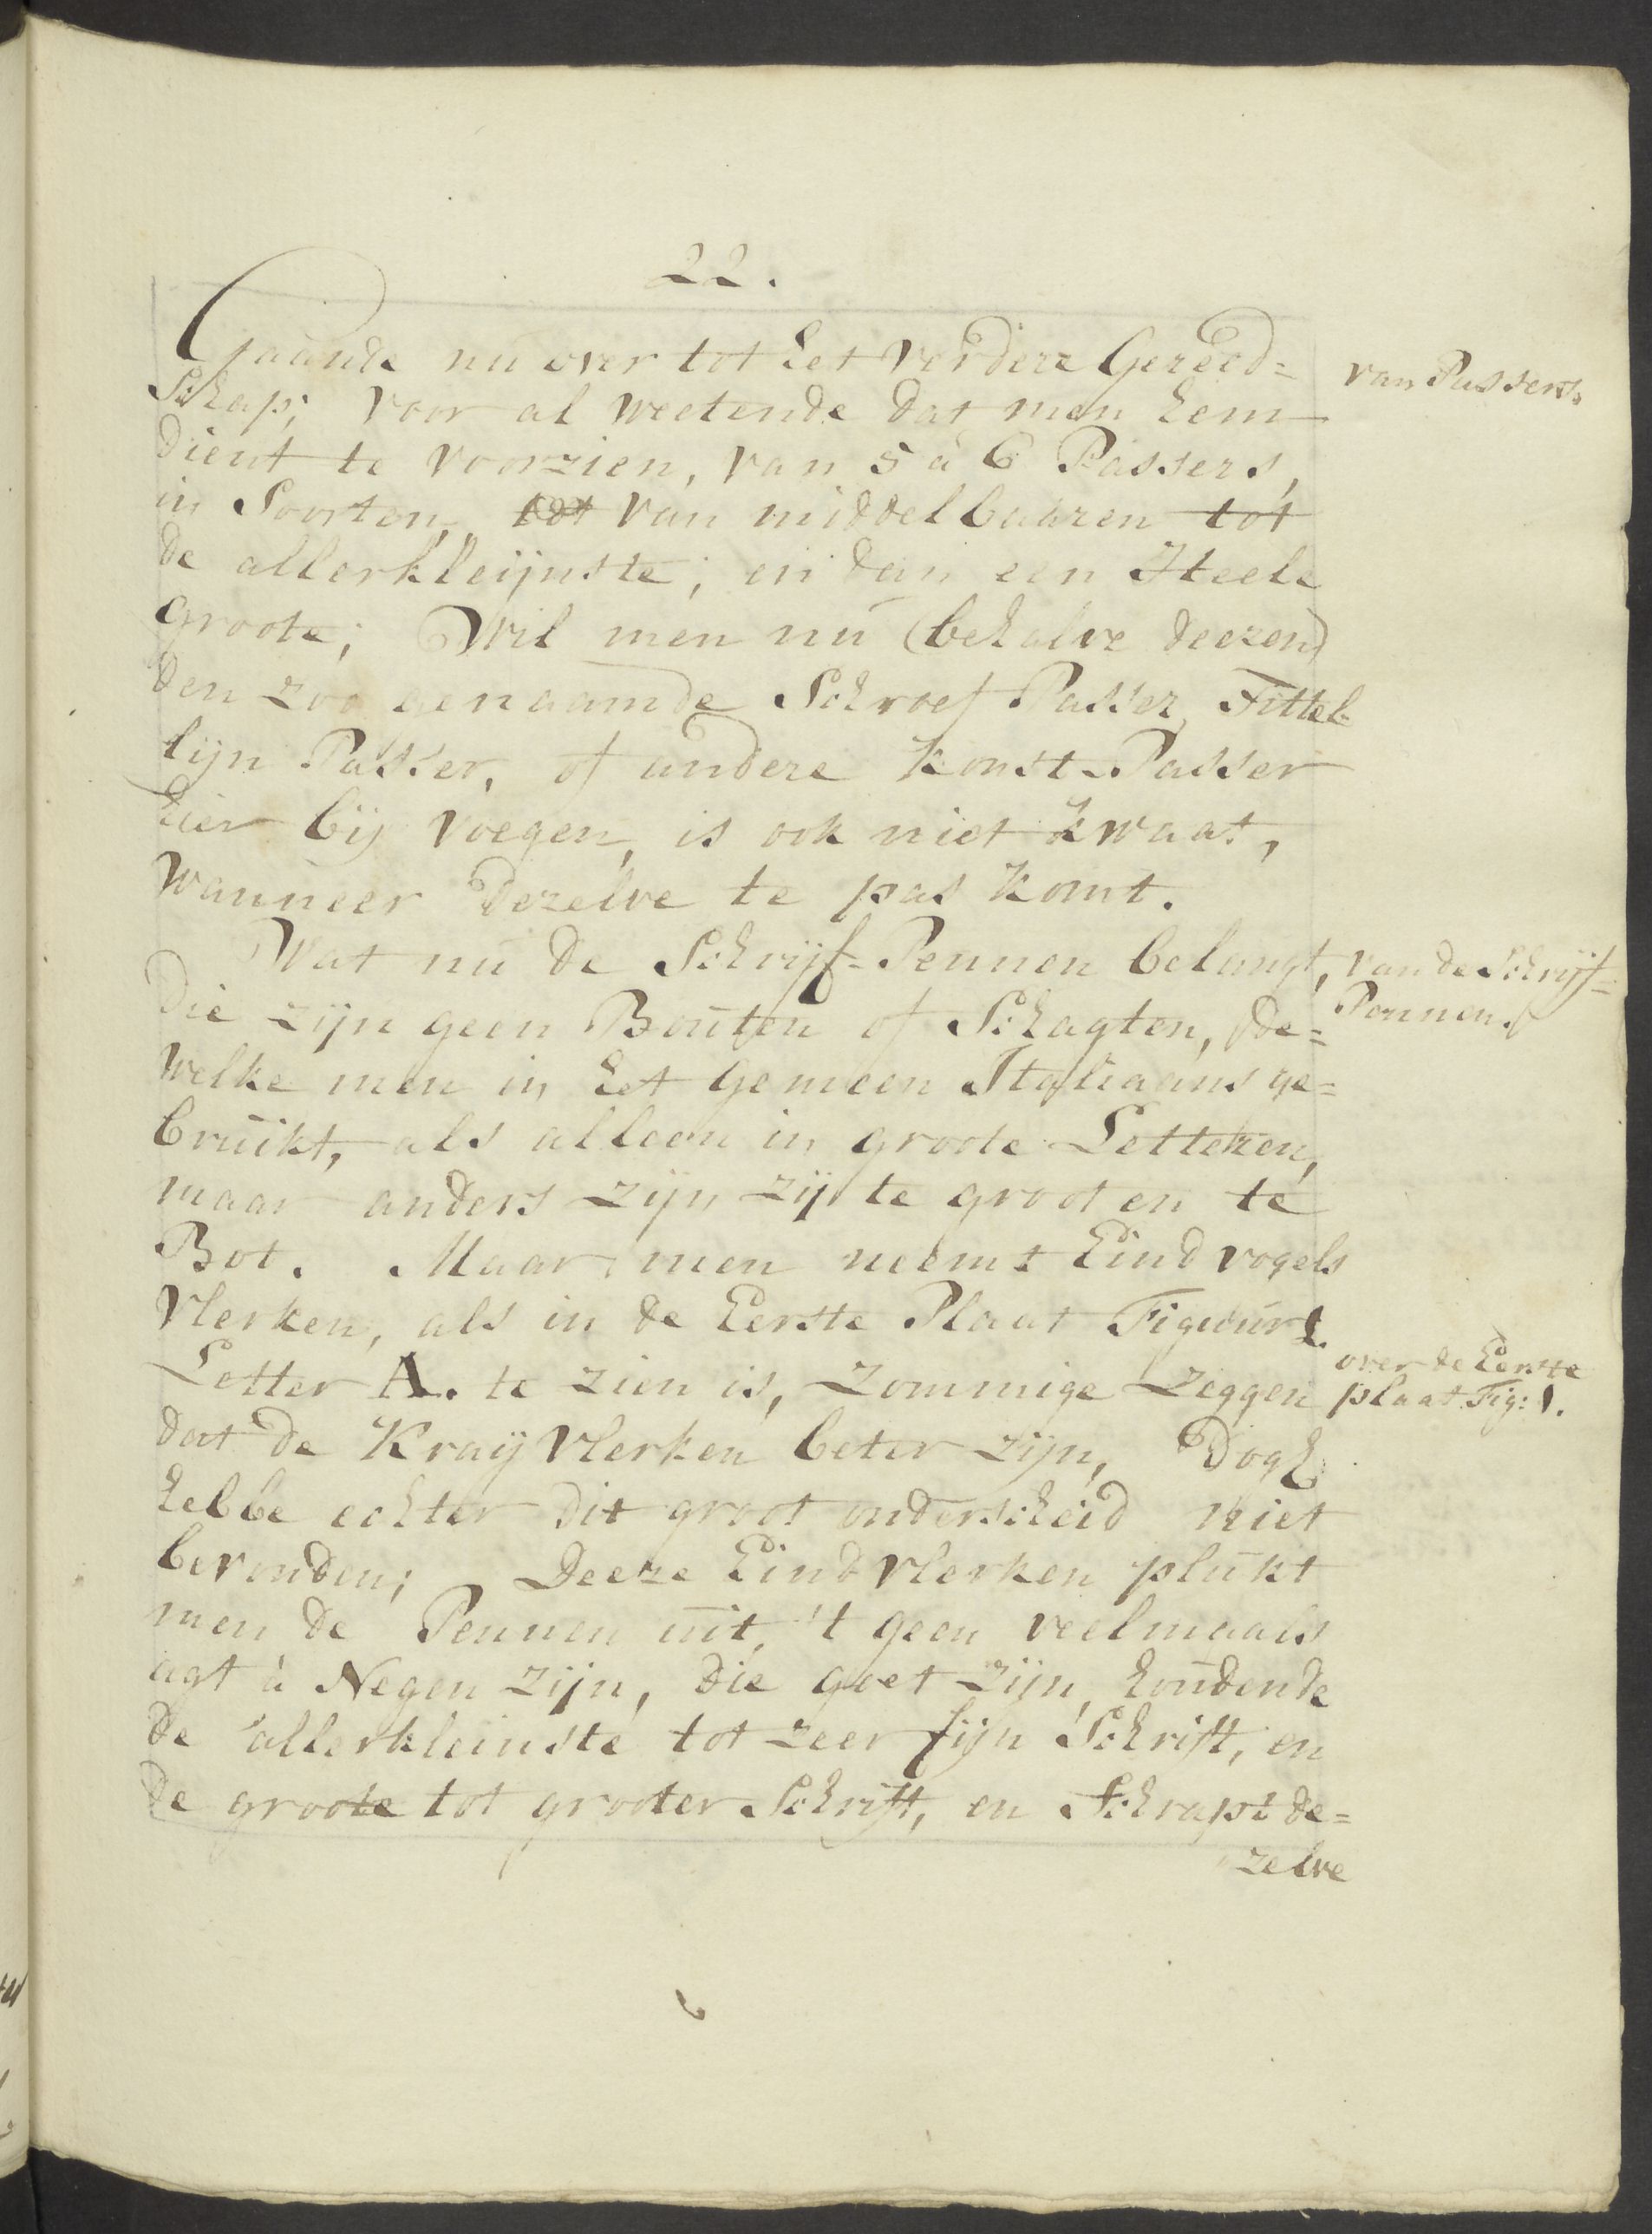 22.
Gaande nu over tot het verdere Gereed=
Schap; voor al weetende dat men hem
dient te voorzien, van 5 à 6 Passers,
in Soorten, tot van middelbaaren tot
de allerkleijnste; en dan een Heele
Groote; Wil men nu (behalve deezen)
den zoo genaamde Schroef Passer, Tittel
lijn Passer, of andere konst-Passer
hier bij voegen, is ook niet kwaat,
wanneer dezelve te pas komt.
van Passers.
Wat nu de Schrijf-Pennen belangt,
Die zijn geen Bouten of Schagten, De=
welke men in het gemeen Italiaans ge=
bruikt, als alleen in groote Letteren,
maar anders zijn zij te groot en te
Bot. Maar men neemt Eind vogels
Vlerken, als in de Eerste Plaat Figuur 1.
Letter A. te zien is, Zommige Zeggen
dat de Kraij Vlerken beter zijn, Dogh
hebbe echter dit groot onderscheid niet
bevonden; Deeze Eind Vlerken plukt
men de Pennen uit, 't geen veelmaals
agt à Negen zijn, die goet zijn, houdende
de allerkleinste tot zeer fijn Schrift, en
de groote tot grooter Schrift, en Schrapt de=
zelve
van de Schrijf=
Pennen.
over de Eerste
plaat Fig: 1.